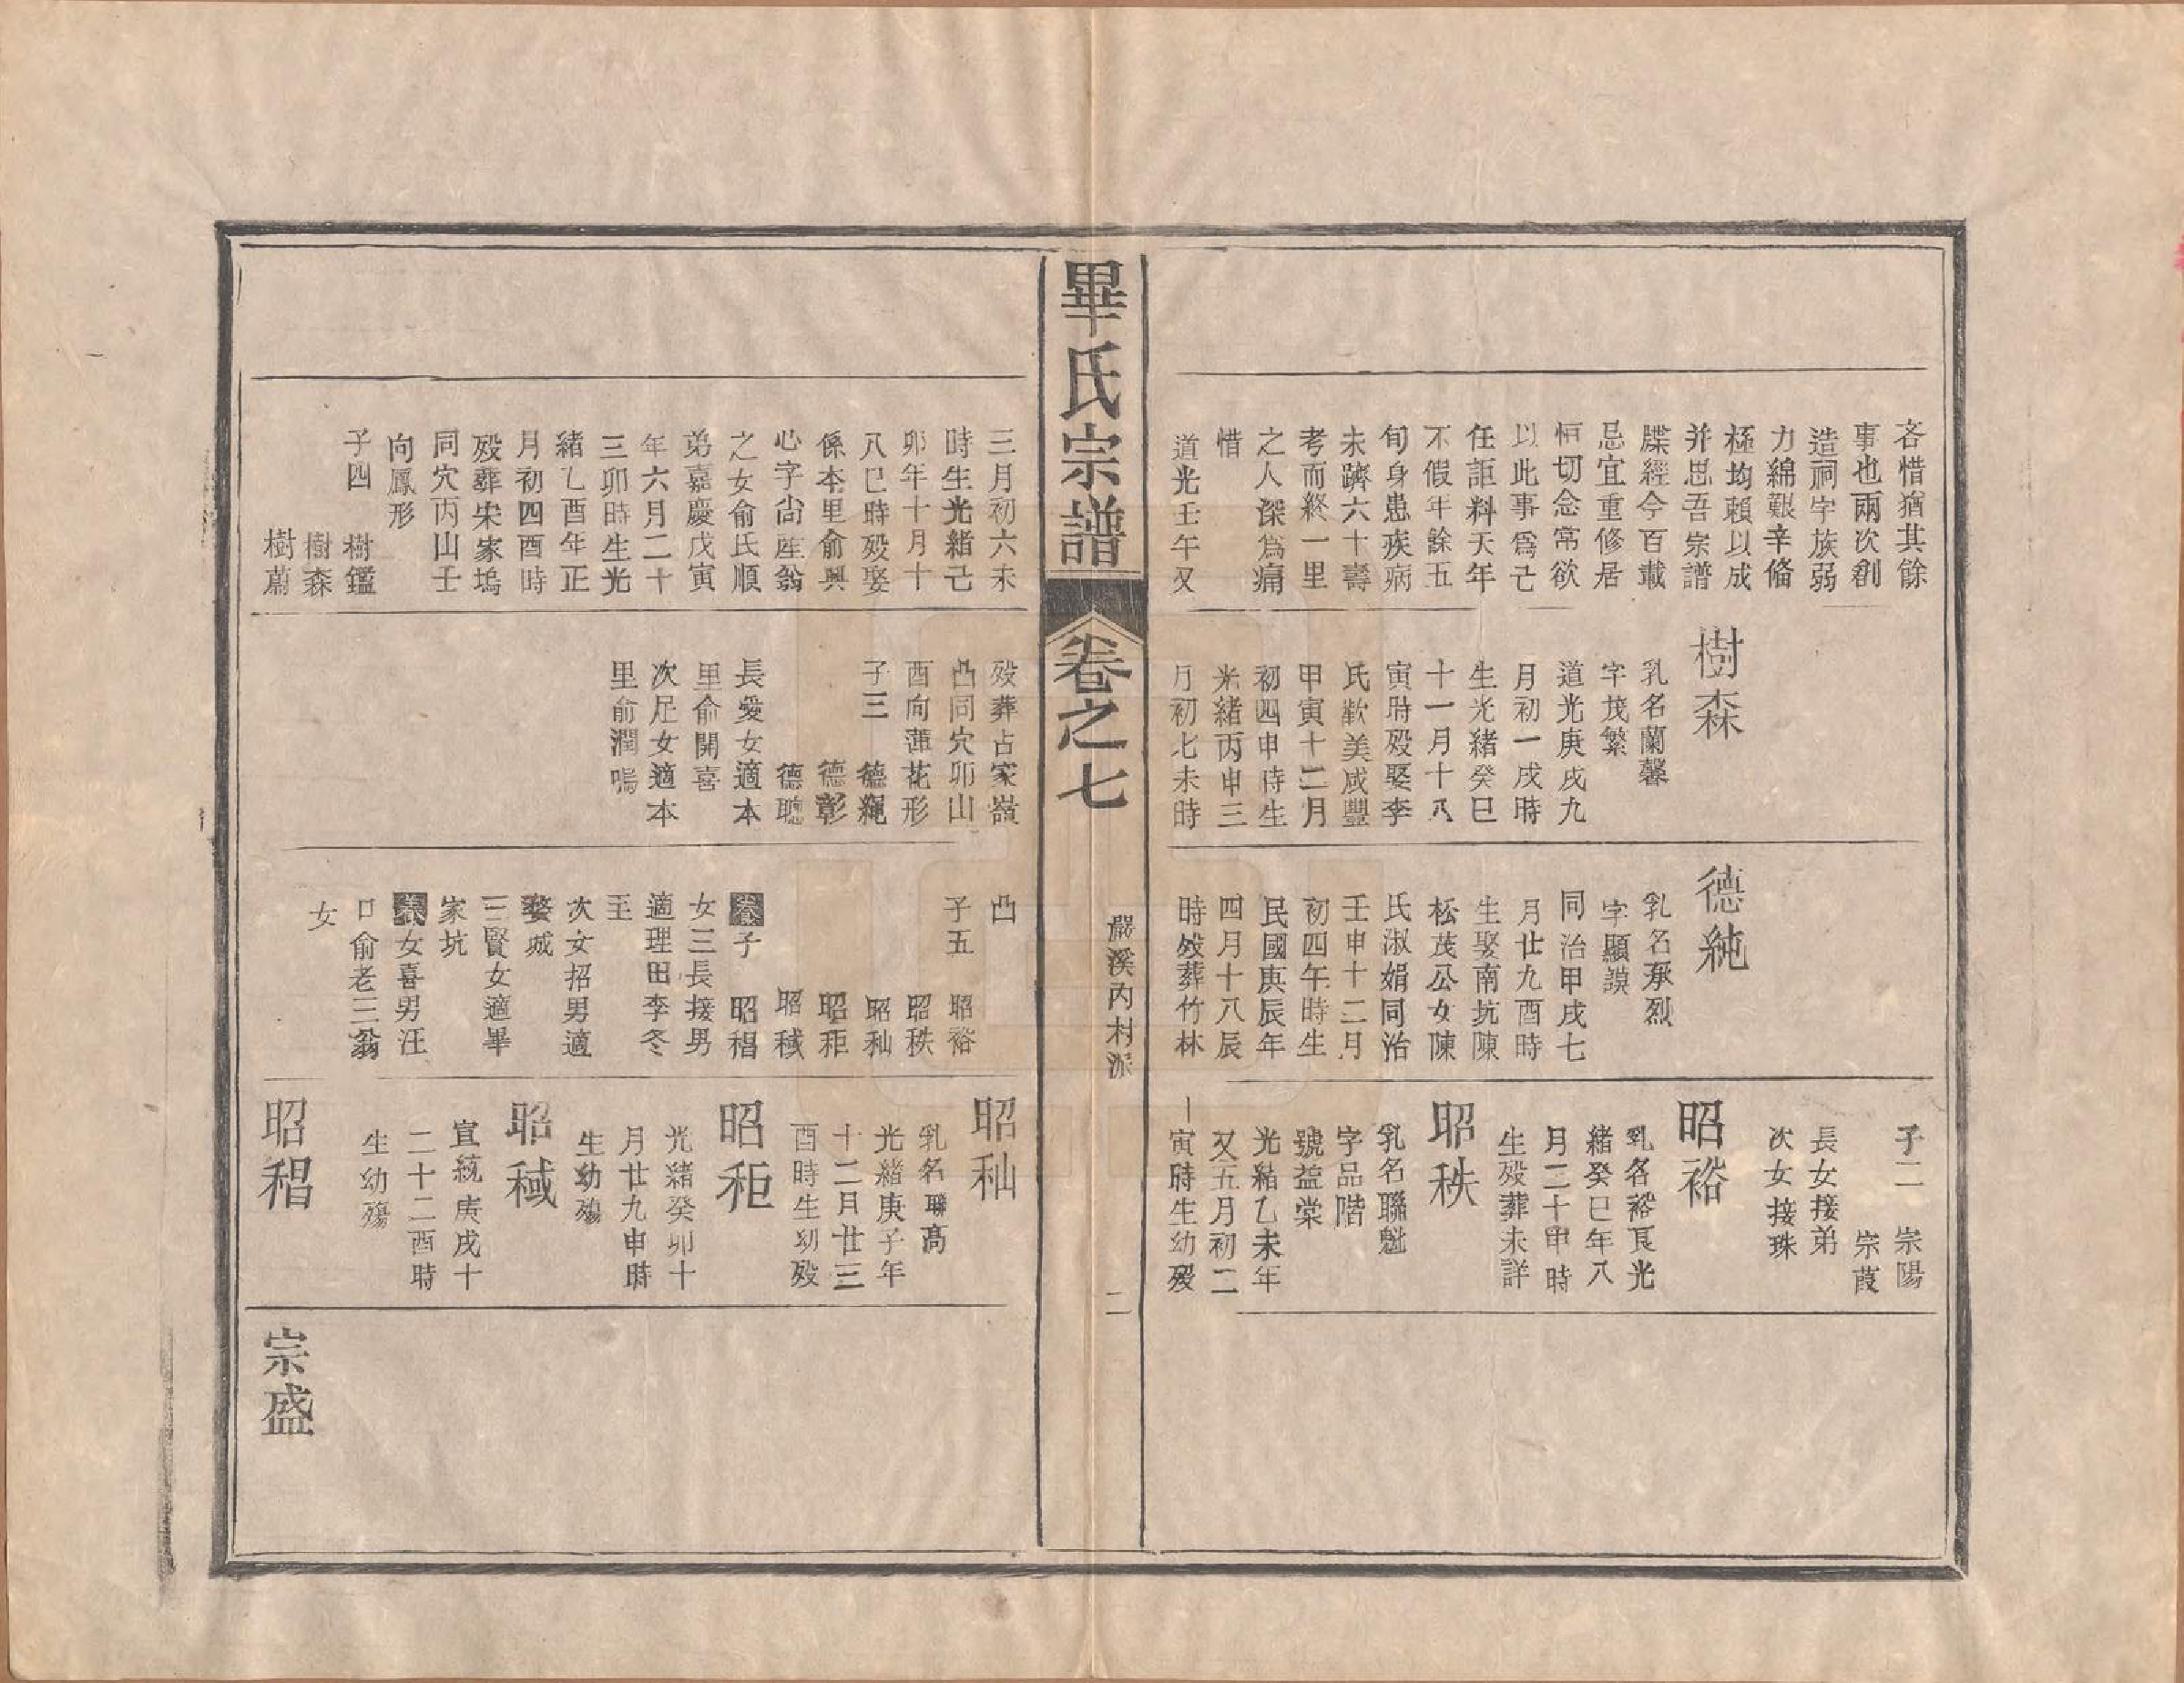 吝惜猶其餘
事也兩次創
造祠宇族弱
力綿艱辛備
極均賴以成
并思吾宗譜
牒經今百載
忌宜重修居
恒切念常欲
以此事為己
任詎料天年
不假年餘五
旬身患疾病
未躋六十壽
考而終一里
之人深為痛
惜
道光壬午又
樹森
乳名蘭馨
字茂繁
道光庚戌九
月初一戌時
生光緒癸巳
十一月十八
寅時歿娶李
氏歡美咸豐
甲寅十二月
初四申時生
光緒丙申三
月初七未時
德純
乳名承烈
字顯謨
同治甲戌七
月廿九酉時
生娶南坑陳
松茂公女陳
氏淑娟同治
壬申十二月
初四午時生
民國庚辰年
四月十八辰
時歿葬竹林
子二 宗陽
宗葭
長女接弟
次女接珠
昭裕
乳名裕良光
緒癸巳年八
月二十申時
生歿葬未詳
昭秩
乳名聯魁
字品階
號益棠
光緒乙未年
又五月初二
寅時生幼歿
畢氏宗譜
卷之七
嚴溪內村派
二
三月初六未
時生光緒己
卯年十月十
八巳時歿娶
係本里俞興
心字尚座翁
之女俞氏順
弟嘉慶戊寅
年六月二十
三卯時生光
緒乙酉年正
月初四酉時
歿葬朱家塢
同穴丙山壬
向鳳形
子四 樹鑑
樹森
樹蕭
歿葬占家嶺
凸同穴卯山
酉向蓮花形
子三 德繩
德彰
德聰
長愛女適本
里俞開喜
次足女適本
里俞潤鳴
凸
子五 昭裕
昭秩
昭秈
昭秬
昭棫
養子 昭稆
女三長接男
適理田李冬
至
次女招男適
婺城
三賢女適畢
家坑
養女喜男汪
口俞老三翁
女
昭秈
乳名聯高
光緒庚子年
十二月廿三
酉時生幼歿
昭秬
光緒癸卯十
月廿九申時
生幼殤
昭稢
宣統庚戌十
二十二酉時
生幼殤
昭稆
宗盛